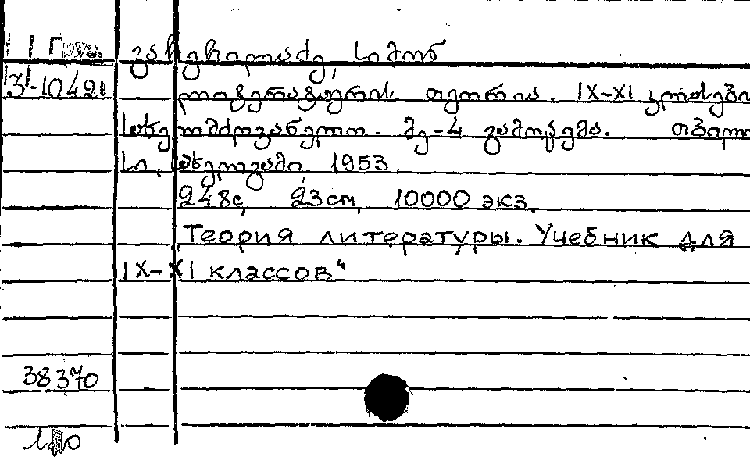 Груз. გაჩეჩილაძე, სიმონ
3-10421 ლიტერატურის თეორია. IX-XI კლასები
სახელმძღვანელო. მე-4 გამოცემა. თბილი
სი, სახელგამი, 1953.
248с, 23см, 10000 экз.
Теория литературы. Учебник для
IX-XI классов"
38370